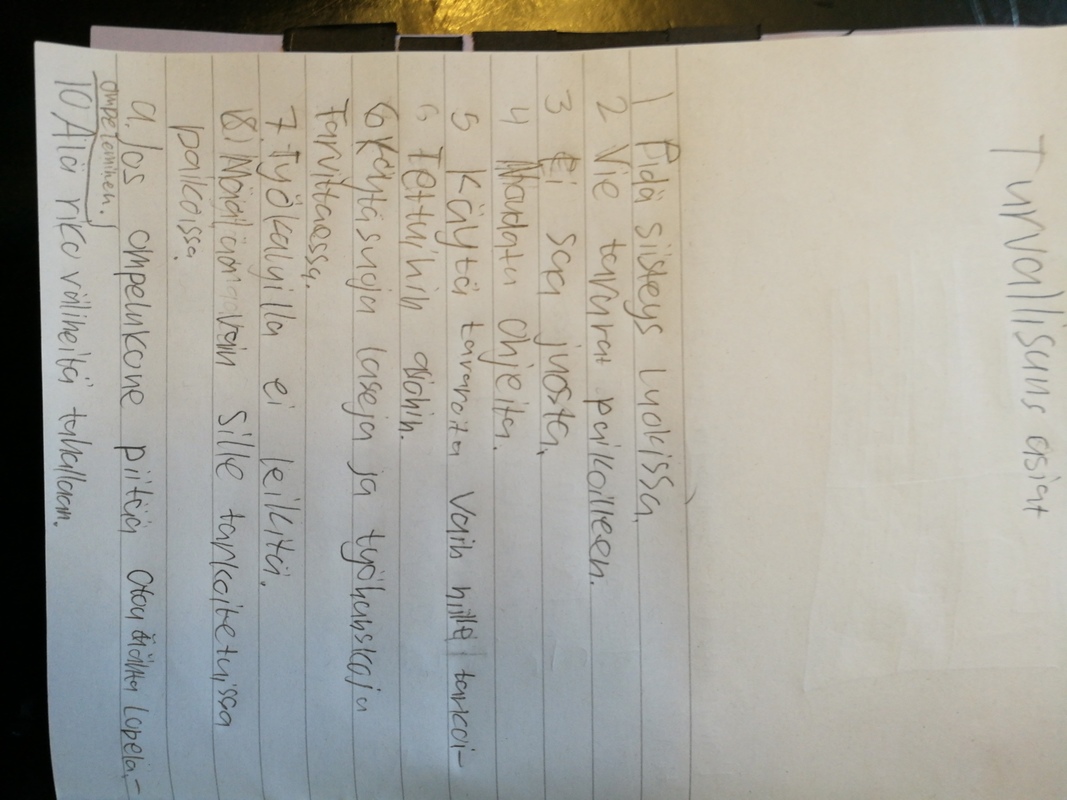 Turvallisuus asiat
1 Pidä siisteys luokissa.
2 Vie tavarat paikoilleen.
3 Ei saa juosta.
4 Noudata ohjeita.
5 Käytä tavaroita vain niille tarkoi-
6 tettuihin asioihin.
6 Käytä suoja laseja ja työhanskoja
tarvittaessa.
7. Työkaluilla ei leikitä.
8 vain sille tarkoitetuissa
paikoissa.
9. Jos ompelukone piitää ota lopeta-
ompeleminen.
10 Älä riko välineitä tahallaan.